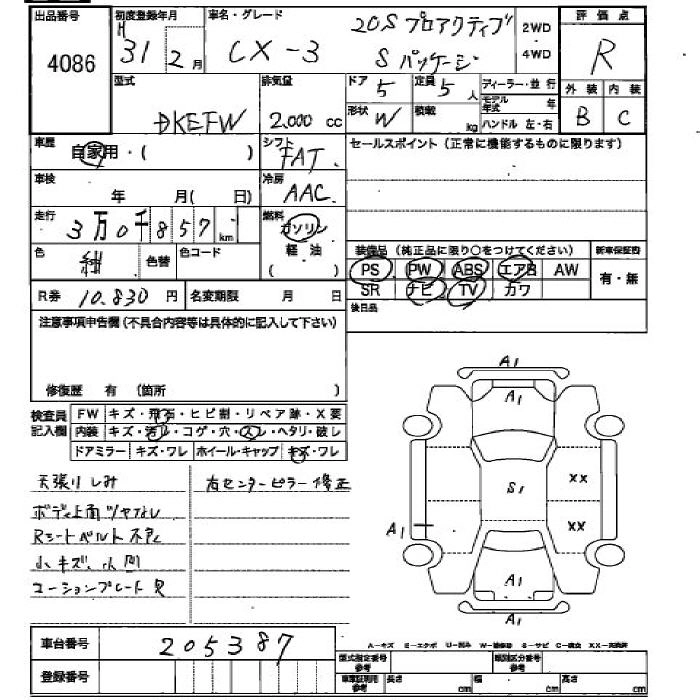 出品番号 4086
初度登録年月 H31 2月
車名・グレード CX-3 20S プロアクティブ S パッケージ
2WD
4WD
評価点 R
外装 内装
B C
型式 DKEFW
排気量 2.000 cc
ドア 5 定員 5人
形状 W 積載 kg
ディーラー・並行
モデル年式 年
ハンドル 左・右
車歴 自家用・( )
シフト FAT
セールスポイント (正常に機能するものに限ります)
車検 年 月( 日)
冷房 AAC
走行 3万0千857km
燃料 ガソリン
軽油
( )
色 紺 色替 色コード
装備品 (純正品に限り○をつけてください) 新車保証書
PS PW ABS エアB AW 有・無
SR ナビ TV カワ
R券 10.830円 名変期限 月 日
後日品
注意事項申告欄(不具合内容等は具体的に記入して下さい)
修復歴 有 (箇所 )
検査員記入欄
FW キズ・飛石・ヒビ割・リペア跡・X要
内装 キズ・汚れ・コゲ・穴・スレ・ヘタリ・破レ
ドアミラー キズ・ワレ ホイール・キャップ キズ・ワレ
天張りしみ 右センターピラー修正
ボディ上面ツヤなし
Rシートベルト不良
小キズ、小凹
コーションプレート欠
A1
A1
S1
XX
XX
A1
A1
A1
車台番号 205387
登録番号
A-キズ E-エクボ U-凹み W-補修跡 S-サビ C-腐食 XX-交換済
型式指定番号 参考
類別区分番号 参考
車庫証明用 参考 長さ cm 幅 cm 高さ cm